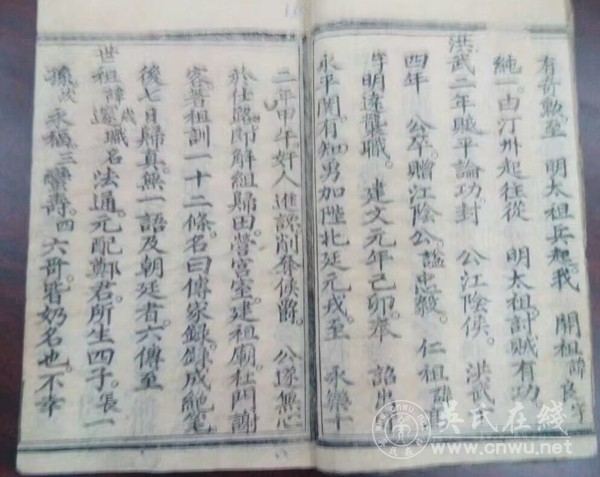 有奇勳至 明太祖兵起我 開祖諱良字
純一由汀州起往從 明太祖討賊有功
洪武二年賊平論功封 公江陰侯 洪武
四年 公卒贈江陰公諡忠毅 仁祖諱
字明達襲職 建文元年己卯奉 詔出
永平関有知勇加陞北廷元戎至 永樂十
二年甲午奸人進讒削發侯爵 公遂無心
於仕路即解組歸田營宮室建祖廟杜門謝
客著祖訓一十二條名曰傳家錄錄成絶筆
後七日歸真無一語及朝廷者六傳至
世祖諱邊職名法通元配鄭君所生四子長一
孫次永福三蠻壽四六哥皆奶名也不幸
吳氏在綫
www.cnwu.net